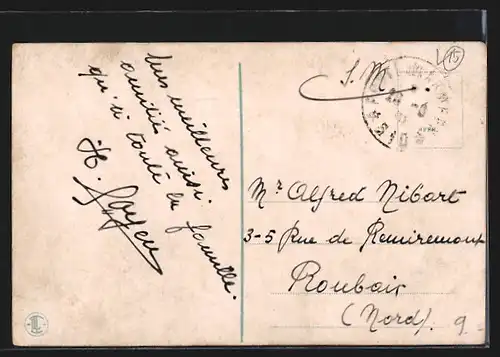 meilleures
amitié ainsi
qu'à toute la famille.
S. M.
Mr. Alfred Nibart
3-5 Rue de Remiremont
Roubaix
(Nord).
9-
15